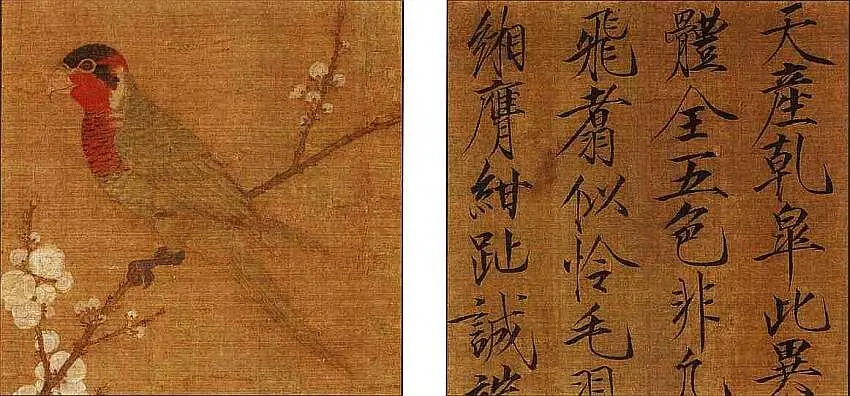 天產乾皋此異
體全五色非凡
飛翥似怜毛羽
緗膺紺趾誠